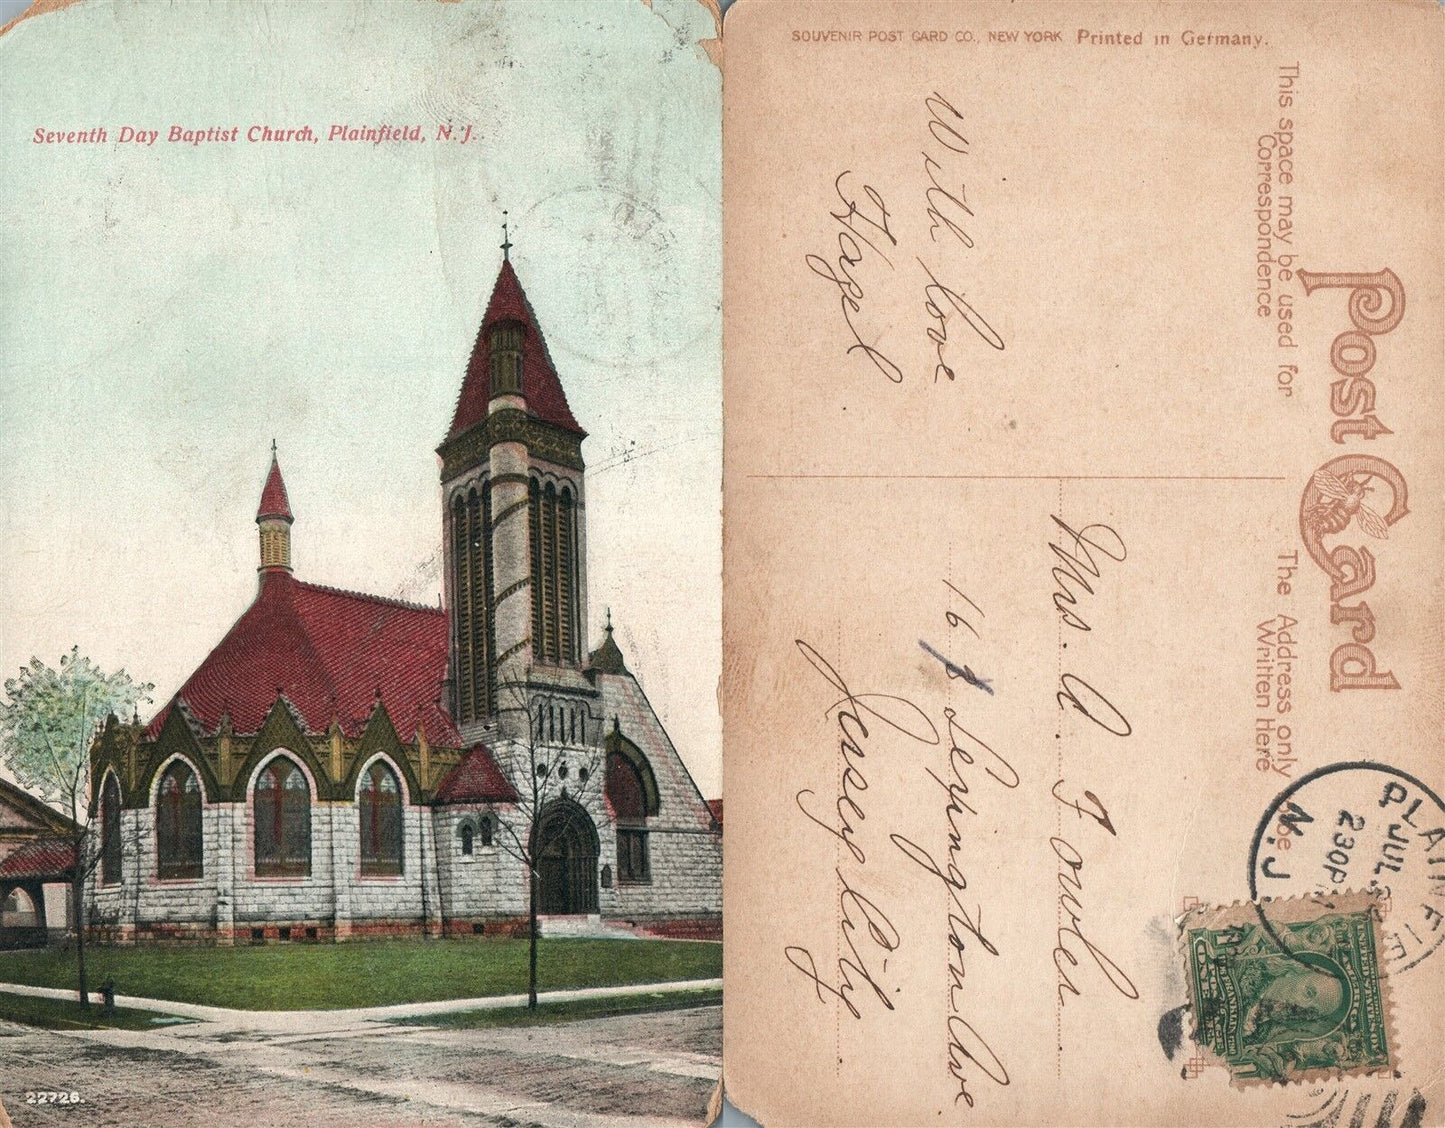 Seventh Day Baptist Church, Plainfield, N.J.
22726.
SOUVENIR POST CARD CO., NEW YORK Printed in Germany.
This space may be used for
Correspondence
Post Card
The Address only
Written Here
With love
Hazel
Mrs. A. Fowler
Lexington Ave
Jersey City
N.J.
JUL
2 30 P